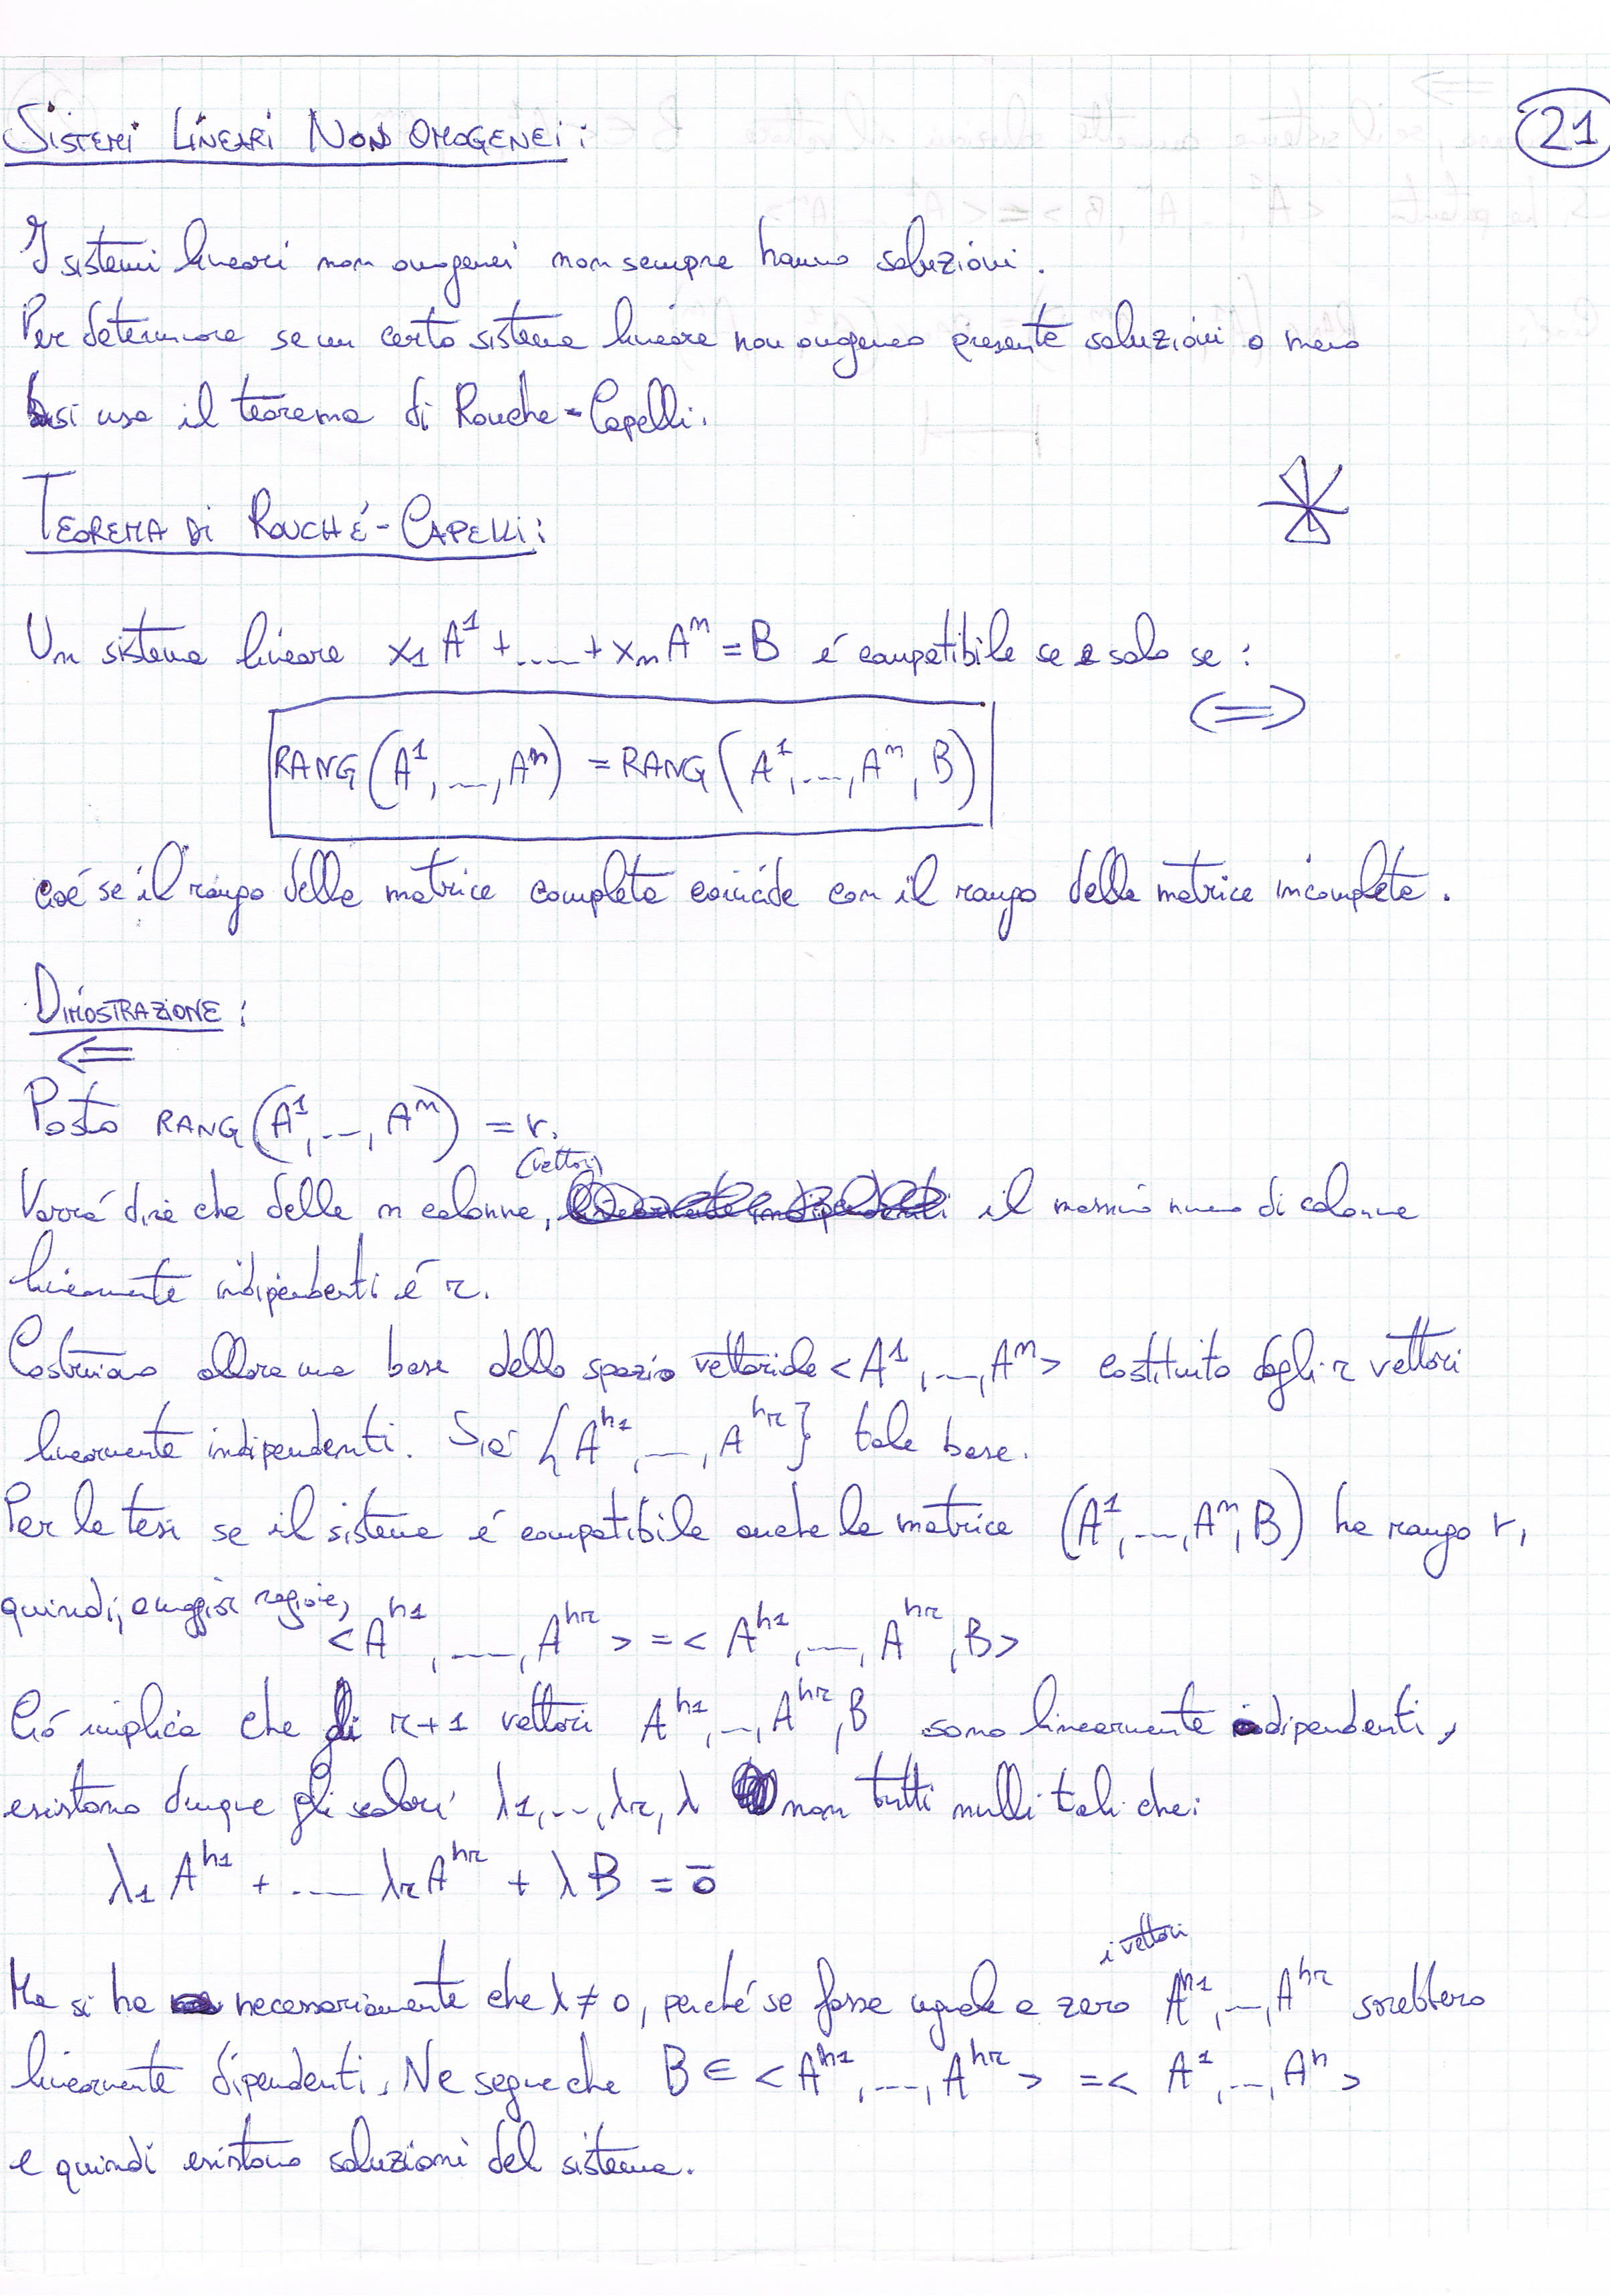 SISTEMI LINEARI NON OMOGENEI:
21
I sistemi lineari non omogenei non sempre hanno soluzioni.
Per determinare se un certo sistema lineare non omogeneo presente soluzioni o meno
si usa il teorema di Rouche-Capelli.
TEOREMA DI ROUCHÉ-CAPELLI:
Un sistema lineare x₁A¹ + ..... + xₙAⁿ = B é compatibile se e solo se :
(⇔)
RANG(A¹, ..., Aⁿ) = RANG(A¹, ..., Aⁿ, B)
cioé se il rango della matrice completa coincide con il rango della matrice incompleta.
DIMOSTRAZIONE:
⇐
Posto RANG(A¹, ..., Aⁿ) = r.
(vettori)
Vorrá dire che delle n colonne, il massimo numero di colonne
linearmente indipendenti é r.
Costruiamo allora una base dello spazio vettoriale <A¹, ..., Aⁿ> costituito dagli r vettori
linearmente indipendenti. Sia {Aʰ¹, ..., Aʰʳ} tale base.
Per la tesi se il sistema é compatibile anche la matrice (A¹, ..., Aⁿ, B) ha rango r,
quindi, a maggior ragione,
<Aʰ¹, ....., Aʰʳ> = <Aʰ¹, ..., Aʰʳ, B>
Ció implica che gli r+1 vettori Aʰ¹, ..., Aʰʳ, B sono linearmente dipendenti,
esistono dunque gli scalari λ1, ..., λr, λ non tutti nulli tali che:
λ₁Aʰ¹ + ..... λrAʰʳ + λB = 0̄
i vettori
Ma si ha necessariamente che λ ≠ 0, perché se fosse uguale a zero Aʰ¹, ..., Aʰʳ sarebbero
linearmente dipendenti. Ne segue che B ∈ <Aʰ¹, ..., Aʰʳ> = <A¹, ..., Aⁿ>
e quindi esistono soluzioni del sistema.